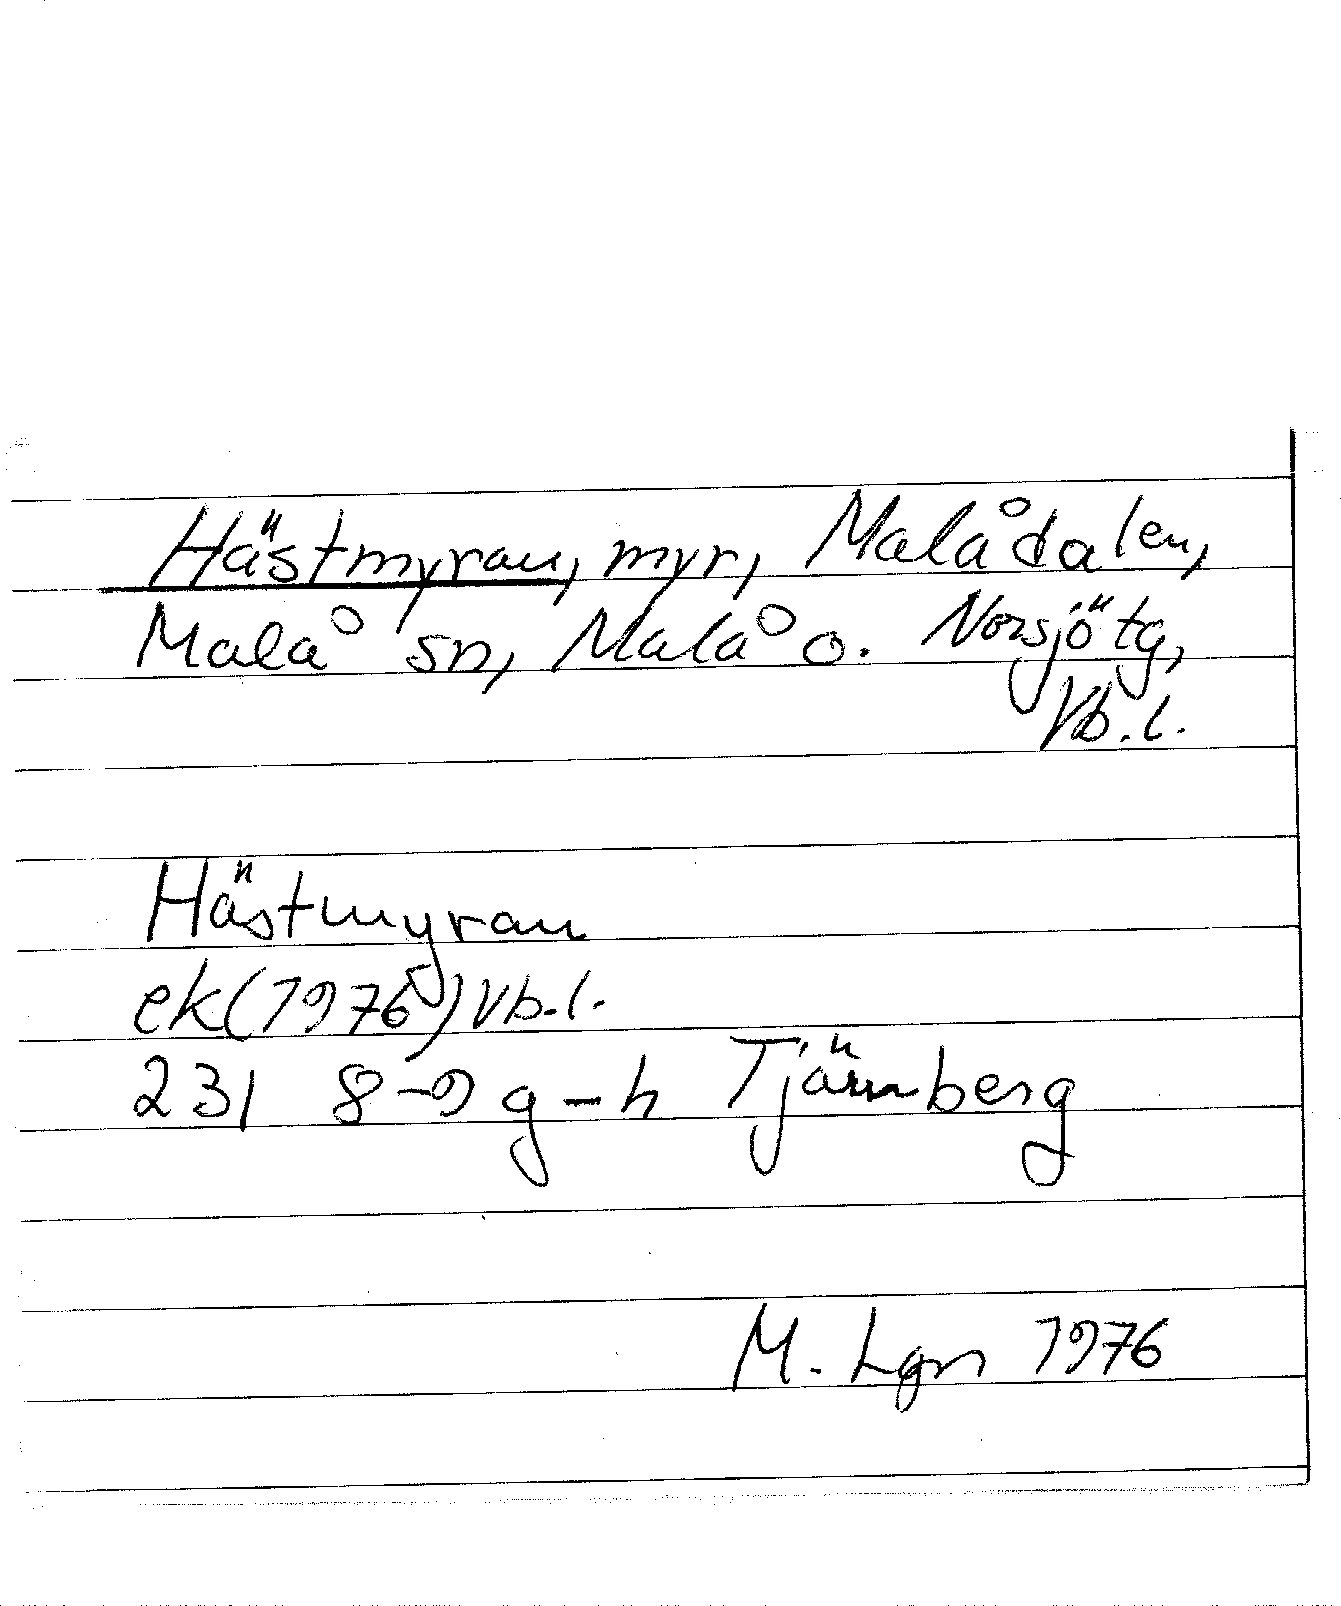 Hästmyran, myr, Malådalen,
Malå sn, Malå o. Norsjö tg,
Vb.l.
Hästmyran
ek(1976) Vb.l.
231 8-9 g-h Tjärnberg
M. Lgn 1976